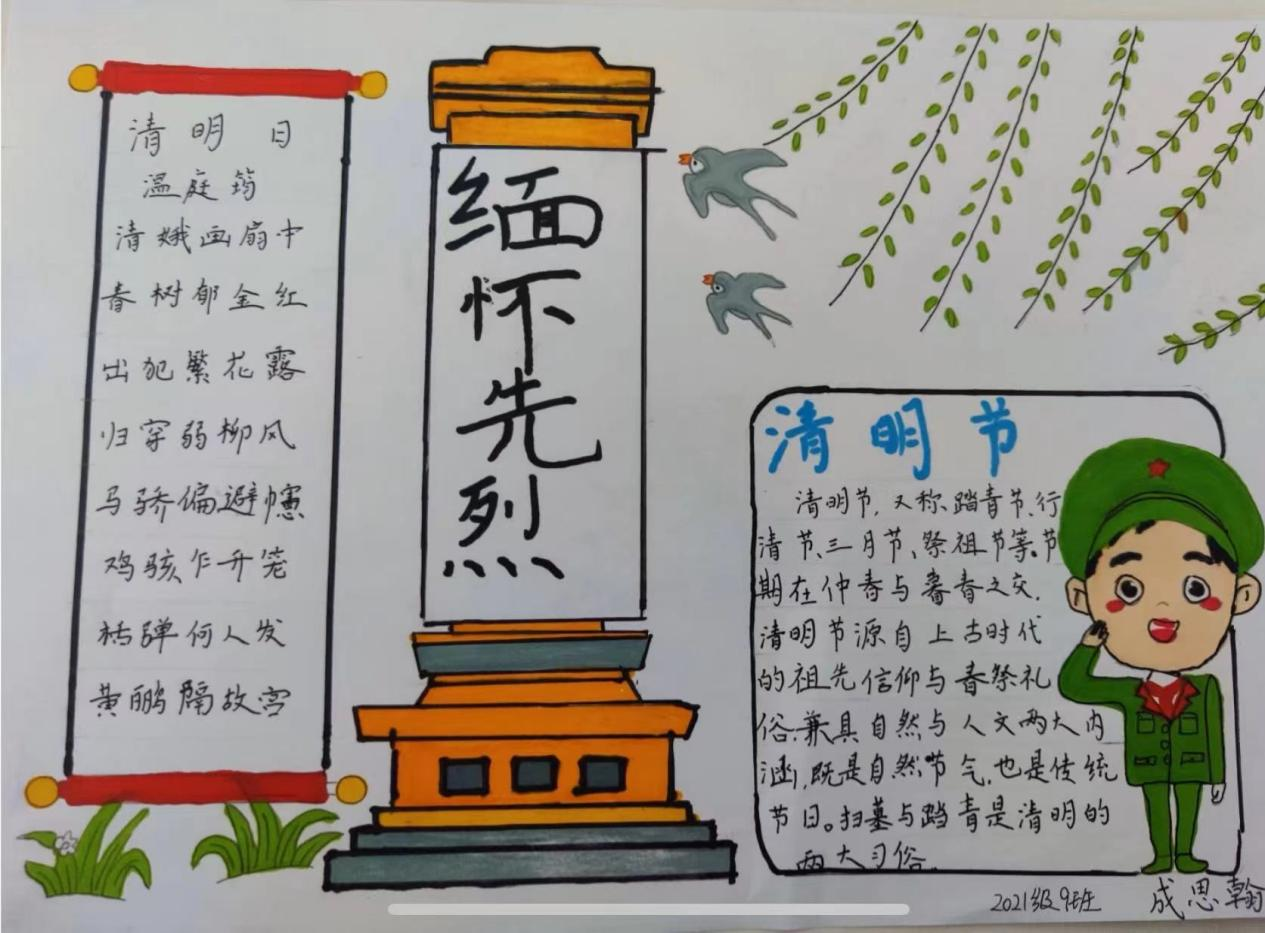 清明日
温庭筠
清娥画扇中
春树郁金红
出犯繁花露
归穿弱柳风
马骄偏避幰
鸡骇乍开笼
柘弹何人发
黄鹂隔故宫
缅怀先烈
清明节
清明节,又称踏青节、行
清节、三月节、祭祖节等。节
期在仲春与暮春之交.
清明节源自上古时代
的祖先信仰与春祭礼
俗.兼具自然与人文两大内
涵,既是自然节气,也是传统
节日。扫墓与踏青是清明的
两大习俗.
2021级9班 成思翰